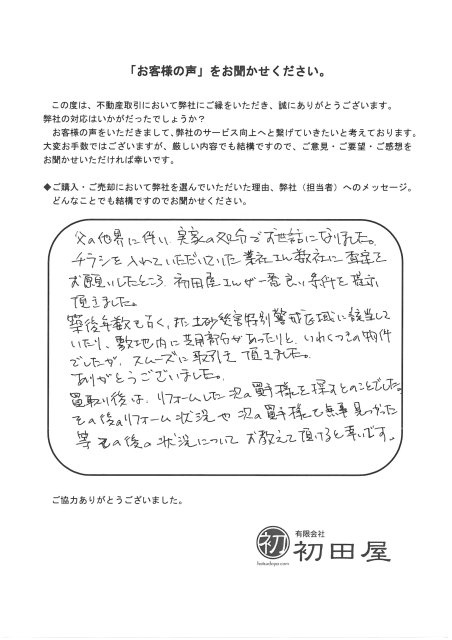 「お客様の声」をお聞かせください。
この度は、不動産取引において弊社にご縁をいただき、誠にありがとうございます。
弊社の対応はいかがだったでしょうか?
お客様の声をいただきまして、弊社のサービス向上へと繋げていきたいと考えております。
大変お手数ではございますが、厳しい内容でも結構ですので、ご意見・ご要望・ご感想を
お聞かせいただければ幸いです。
◆ご購入・ご売却において弊社を選んでいただいた理由、弊社(担当者)へのメッセージ。
どんなことでも結構ですのでお聞かせください。
父の他界に伴い実家の処分でお世話になりました。
チラシを入れていただいていた業社さん数社に査定を
お願いしたところ 初田屋さんが一番良い条件を提示
頂きました。
築後年数も古く、また土砂災害特別警戒区域に該当して
いたり、敷地内に共用部分があったりと、いわくつきの物件
でしたが、スムーズに取引き頂きました。
ありがとうございました。
買取り後は、リフォームした次の買手様を探すとのことでした。
その後のリフォーム状況や次の買手様も無事見つかった
等その後の状況についてお教えて頂けると幸いです。
ご協力ありがとうございました。
初
hatsudaya.com
有限会社
初田屋